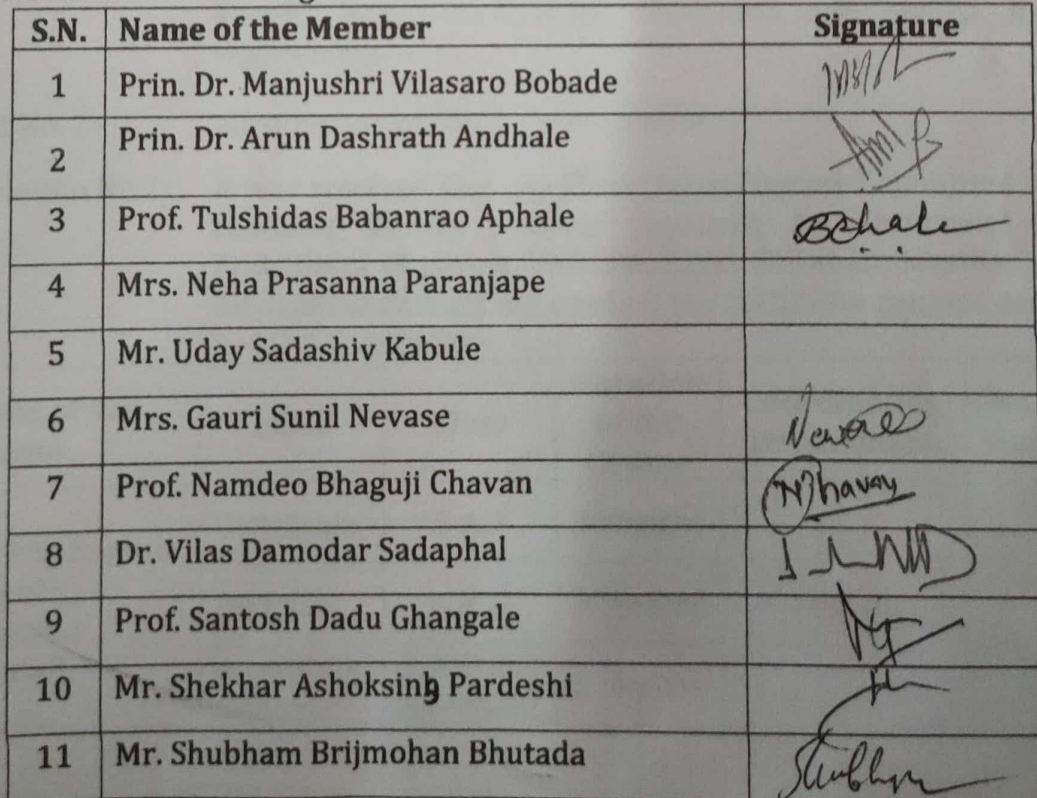 S.N. Name of the Member Signature
1 Prin. Dr. Manjushri Vilasaro Bobade
2 Prin. Dr. Arun Dashrath Andhale
3 Prof. Tulshidas Babanrao Aphale
4 Mrs. Neha Prasanna Paranjape
5 Mr. Uday Sadashiv Kabule
6 Mrs. Gauri Sunil Nevase
7 Prof. Namdeo Bhaguji Chavan
8 Dr. Vilas Damodar Sadaphal
9 Prof. Santosh Dadu Ghangale
10 Mr. Shekhar Ashoksing Pardeshi
11 Mr. Shubham Brijmohan Bhutada